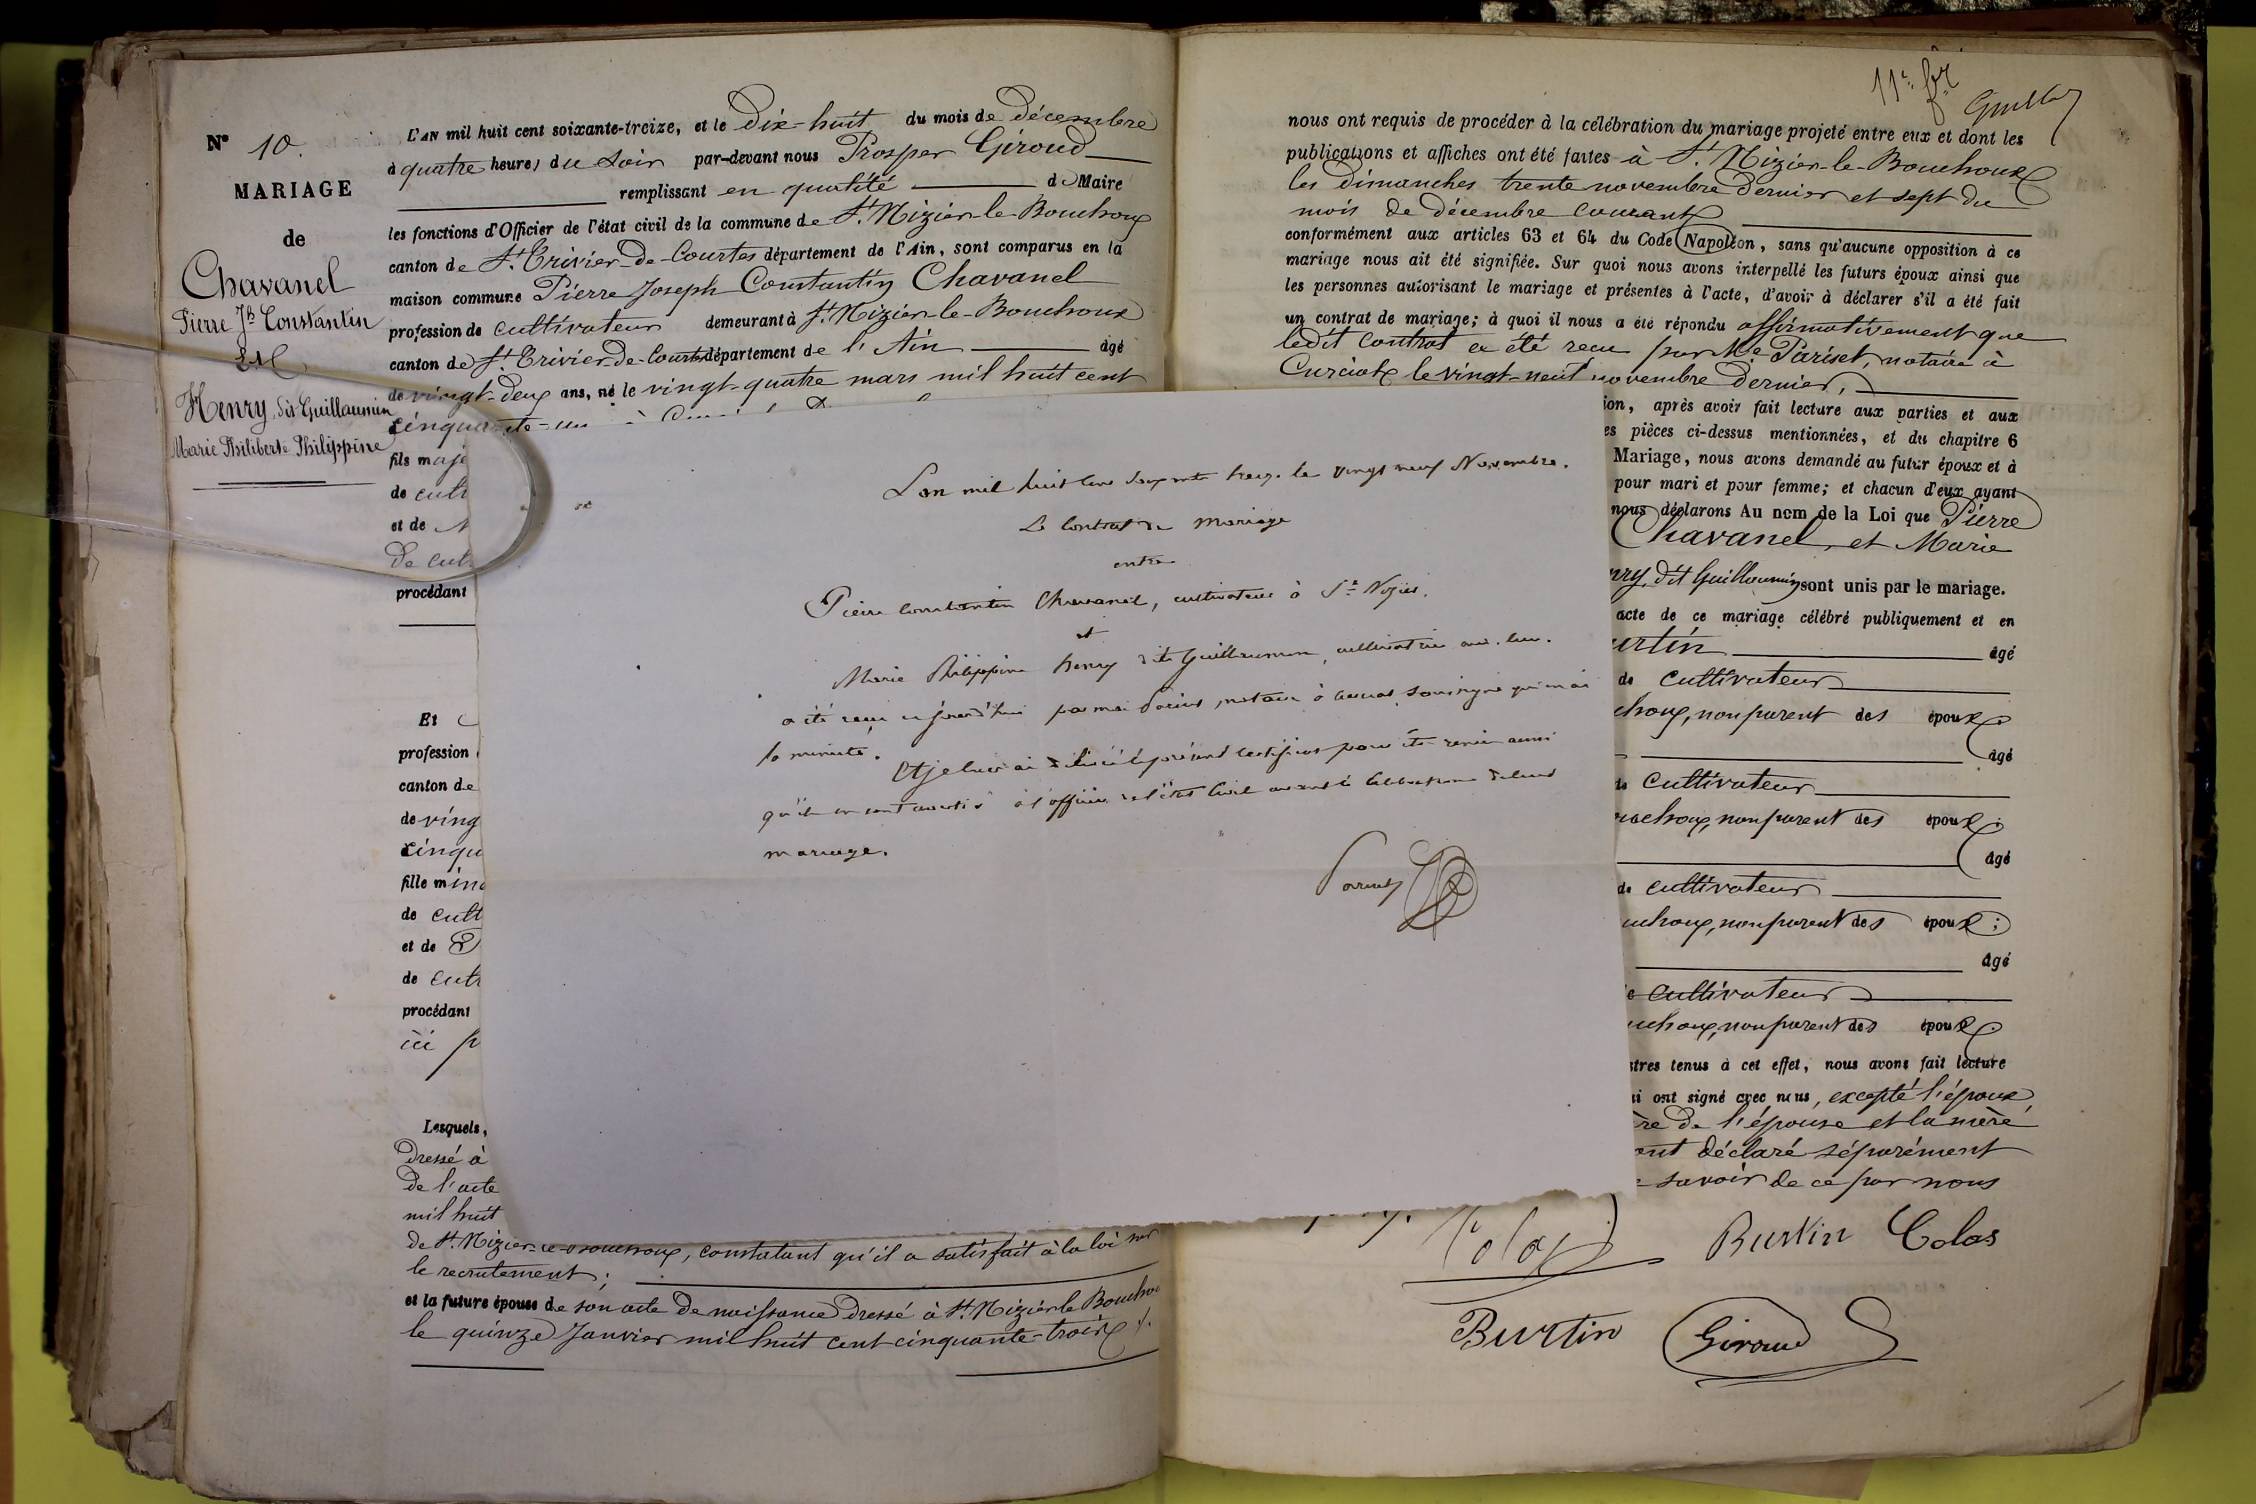 N° 10.
MARIAGE
de
Chavanel
Pierre Jh Constantin
et
Henry, dit Guillaumin
Marie Philiberte Philippine
L'AN mil huit cent soixante-treize, et le Dix-huit du mois de décembre
à quatre heures du soir par-devant nous Prosper Giroud
remplissant en qualité de Maire
les fonctions d'Officier de l'état civil de la commune de St Nizier-le-Bouchoux
canton de St Trivier-de-Courtes département de l'Ain, sont comparus en la
maison commune Pierre Joseph Constantin Chavanel
profession de cultivateur demeurant à St Nizier-le-Bouchoux
canton de St Trivier-de-Courtes département de l'Ain âgé
de vingt-deux ans, né le vingt-quatre mars mil huit cent
cinquante-un à
fils maje
de cult
et de
De cult
procédant
Et
profession
canton de
de ving
cinqu
fille min
de cult
et de
de cult
procédant
ici p
Lesquels,
Dressé à
De l'acte
mil huit
de St Nizier-le-Bouchoux, constatant qu'il a satisfait à la loi sur
le recrutement;
et la future épouse de son acte de naissance dressé à St Nizier-le-Bouchou
le quinze Janvier mil huit cent cinquante-trois
L'an mil huit cent soixante treize le vingt neuf Novembre.
Le Contrat de mariage
entre
Pierre Constantin Chavanel, cultivateur à St Nizier,
et
Marie Philippine henry dite Guillaumin, cultivatrice au lieu.
a été reçu ce jourd'hui par moi notaire à soussigné qui en ai
la minute.
Et je leur ai délivré le présent certificat pour être remis ainsi
qu'ils en sont avertis à l'officier de l'état Civil avant la célébration de leur
mariage.
11e
nous ont requis de procéder à la célébration du mariage projeté entre eux et dont les
publications et affiches ont été faites à St Nizier-le-Bouchoux
les dimanches trente novembre dernier et sept du
mois de décembre courant
conformément aux articles 63 et 64 du Code Napoléon, sans qu'aucune opposition à ce
mariage nous ait été signifiée. Sur quoi nous avons interpellé les futurs époux ainsi que
les personnes autorisant le mariage et présentes à l'acte, d'avoir à déclarer s'il a été fait
un contrat de mariage; à quoi il nous a été répondu affirmativement que
ledit contrat a été reçu par Me Pariset, notaire à
Curciat le vingt-neuf novembre dernier,
ion, après avoir fait lecture aux parties et aux
es pièces ci-dessus mentionnées, et du chapitre 6
Mariage, nous avons demandé au futur époux et à
pour mari et pour femme; et chacun d'eux ayant
nous déclarons Au nom de la Loi que Pierre
Chavanel, et Marie
nry, dit Guillaumin sont unis par le mariage.
acte de ce mariage célébré publiquement et en
urtin âgé
de cultivateur
choux, non parent des époux
âgé
de cultivateur
uchoux, non parent des époux;
âgé
de cultivateur
uchoux, non parent des époux;
âgé
e cultivateur
uchoux, non parent des époux.
stres tenus à cet effet, nous avons fait lecture
i ont signé avec nous, excepté l'époux
ère de l'épouse et la mère
ont déclaré séparément
savoir de ce par nous
Colas Burtin Colas
Burtin Giroud